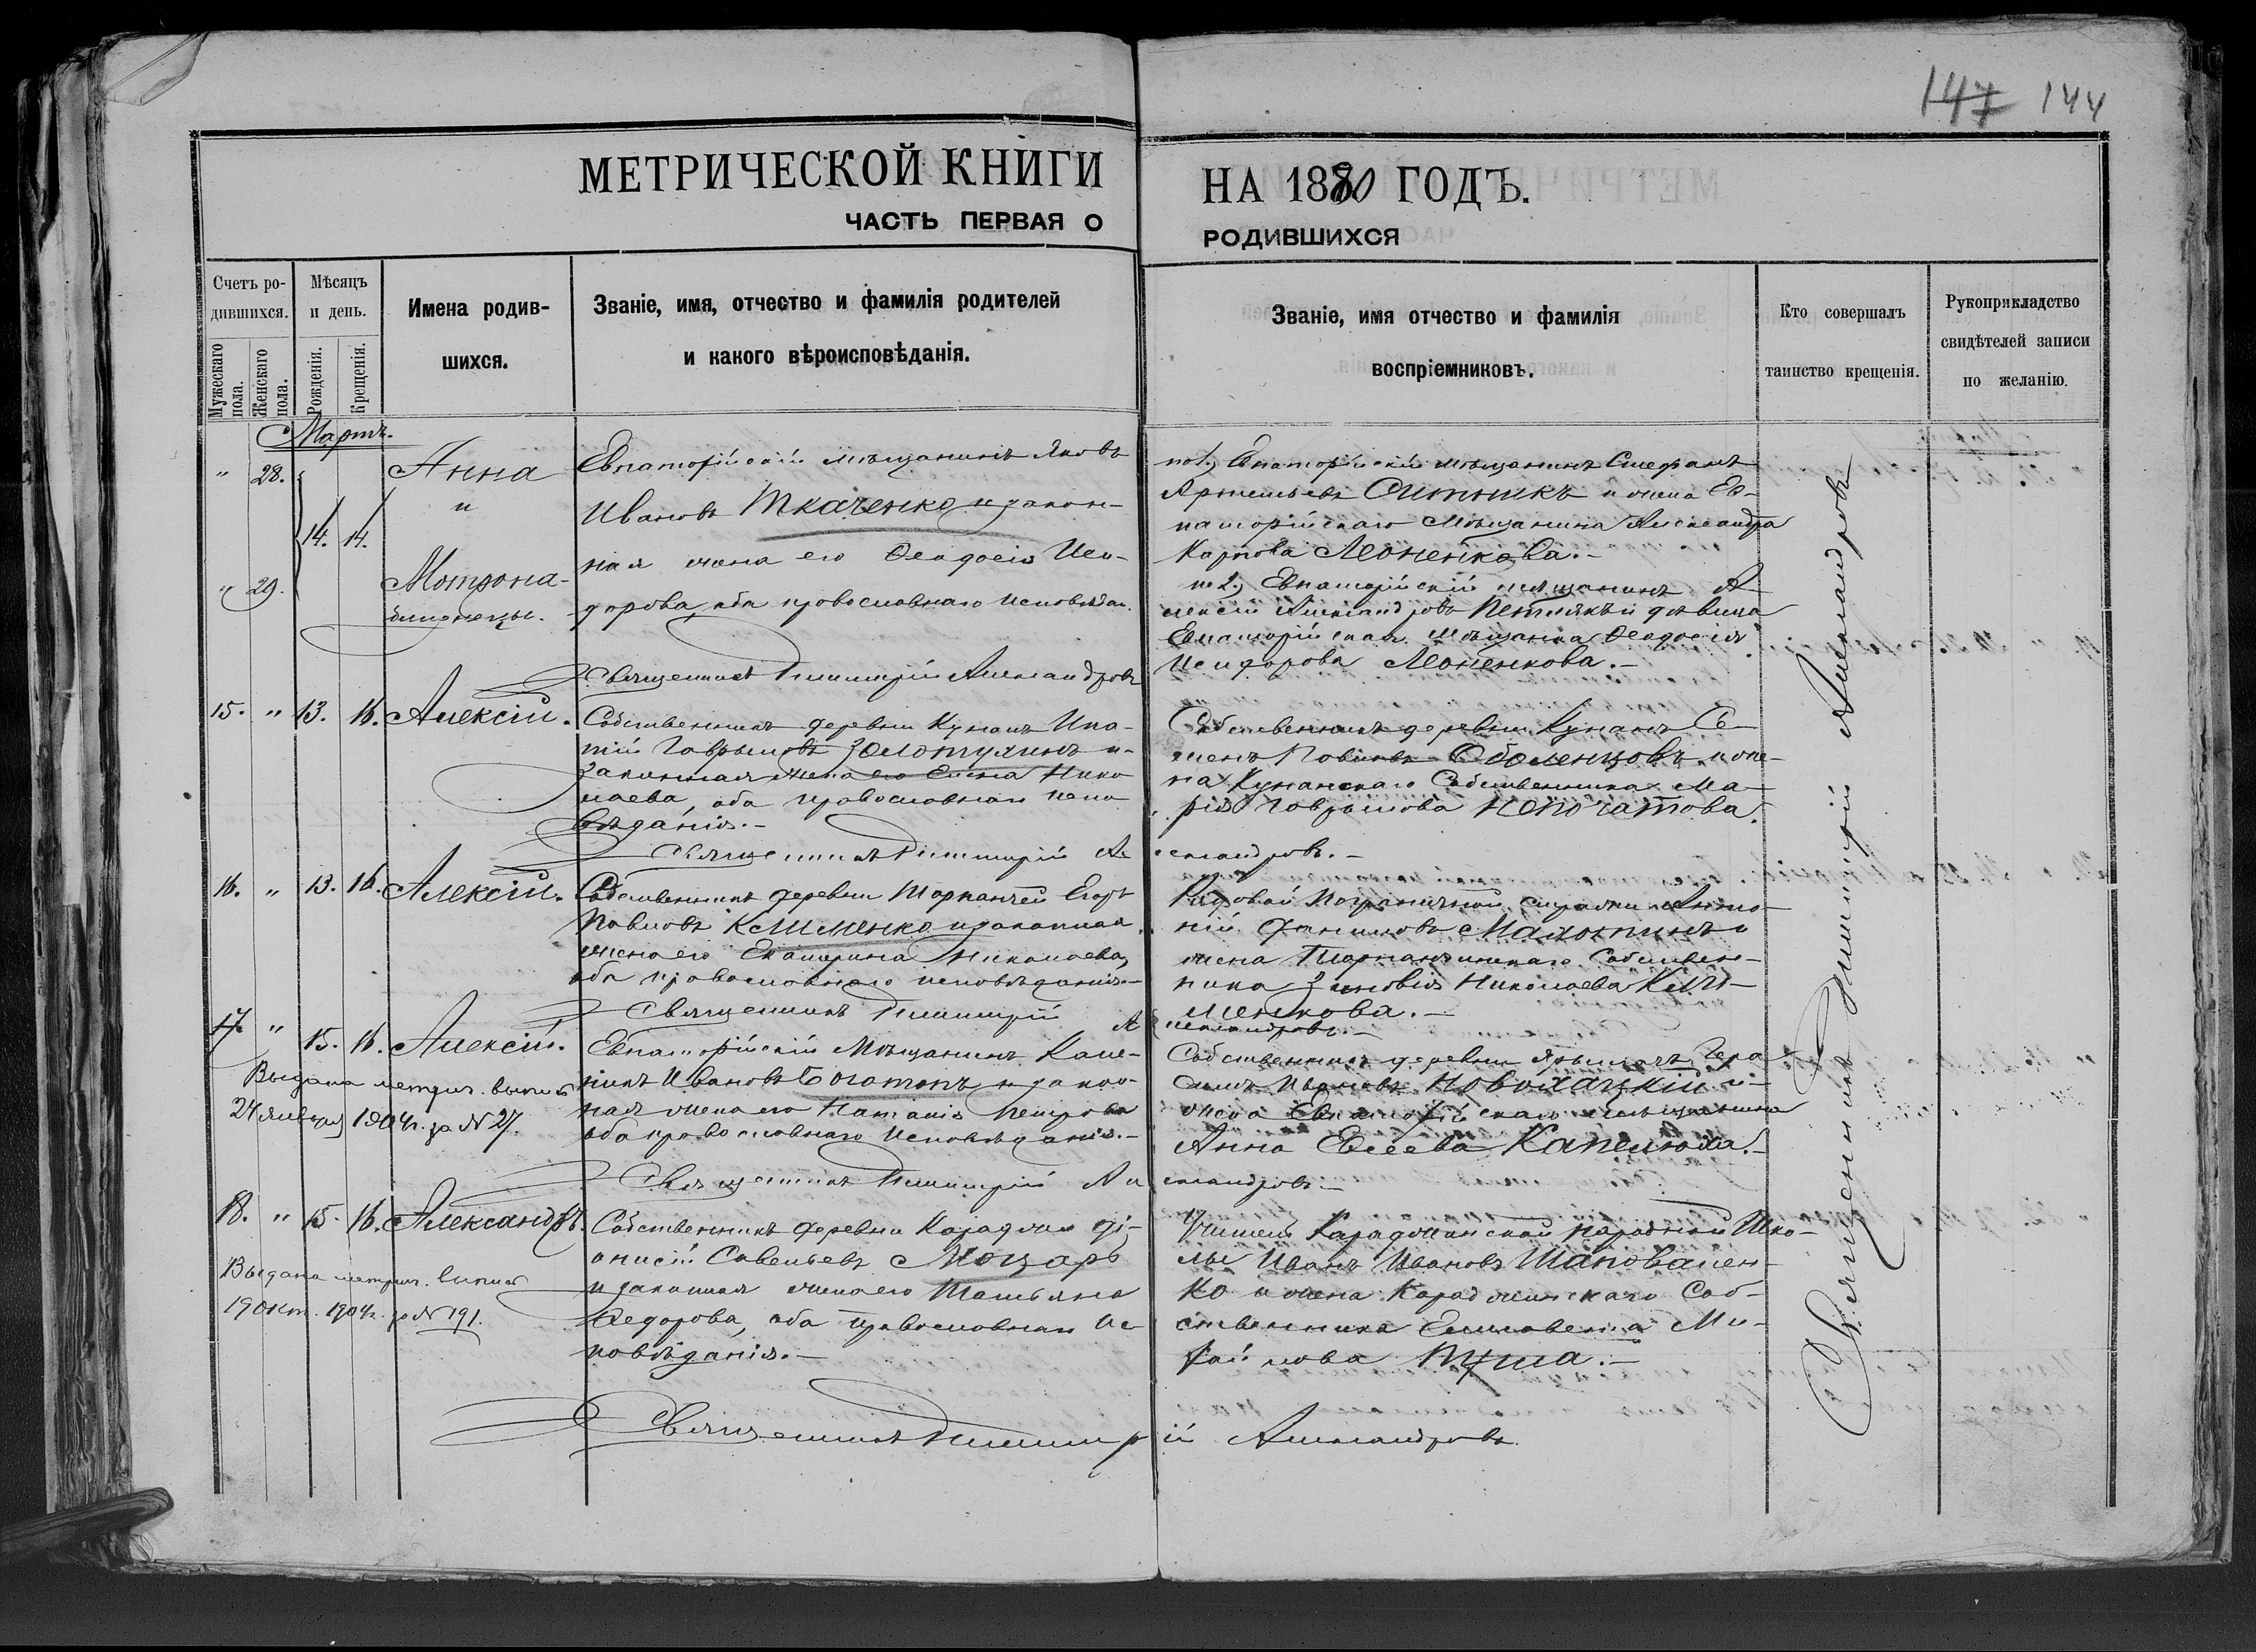 147 144
МЕТРИЧЕСКОЙ КНИГИ
НА 1880 ГОДЪ.
ЧАСТЬ ПЕРВАЯ О
РОДИВШИХСЯ
Счетъ ро-
дившихся.
Мужескаго пола.
Женскаго пола.
Мѣсяцъ
и день.
Рожденія.
Крещенія.
Имена родив-
шихся.
Званіе, имя, отчество и фамилія родителей
и какого вѣроисповѣданія.
Званіе, имя отчество и фамилія
воспріемниковъ.
Кто совершалъ
таинство крещенія.
Рукоприкладство
свидѣтелей записи
по желанію.
Мартъ.
" 28.
14. 14.
" 29.
Анна
и
Мотрона
близнецы.
Евпаторійскій мѣщанинъ Яковъ
Ивановъ Ткаченко и закон-
ная жена его Ѳеодосія Иси-
дорова, оба православнаго исповѣдан.
Священникъ Димитрій Александровъ
по 1, Евпаторійскій мѣщанинъ Стефанъ
Артемьевъ Ситникъ и жена Ев-
паторійскаго мѣщанина Александра
Карпова Леоненкова.-
по 2, Евпаторійскій мѣщанинъ А-
лексій Александровъ и дѣвица
Евпаторійская мѣщанка Ѳеодосія
Исидорова Леоненкова.-
15. " 13. 16. Алексій.
Собственникъ деревни Кунанъ Ипа-
тій Гавриловъ Золотухинъ и
законная жена его Елена Нико
лаева, оба православнаго испо
вѣданія.-
Священникъ Димитрій Александровъ.-
Собственникъ деревни Кунанъ Се-
менъ Павловъ Оболенцовъ и же-
на Кунанскаго Собственника Ма-
рія Гаврилова Непочатова.
16. " 13. 16. Алексій.
Собственникъ деревни Тарханчей Егоръ
Павловъ Клименко и законная
жена его Екатерина Николаева,
оба православнаго исповѣданія.-
Священникъ Димитрій Александровъ.-
Рядовой Пограничной стражи Анто-
ній и
жена Тарханчинскаго Собствен-
ника Зиновія Николаева Кли-
менкова.-
17. " 15. 16. Алексій.
Выдана метрич. выпись
24 января 1904 г. за N 27.
Евпаторійскій мѣщанинъ Кали-
никъ Ивановъ Богатопъ и закон-
ная жена его Наталія Петрова
оба православнаго исповѣданія.-
Священникъ Димитрій Александровъ.-
Собственникъ деревни Ярылгачъ Гера
симъ Ивановъ и
жена Евпаторійскаго мѣщанина
Анна Елеева Капелюха.-
18. " 15. 16. Александръ.
Выдана метрич. выпись
19 Окт. 1904 г. за N 191.
Собственникъ деревни Караджи Ді-
онисій Савельевъ Моцарь
и законная жена его Татьяна
Ѳедорова, оба православнаго ис
повѣданія.-
Учитель Караджинской народной Шко-
лы Иванъ Ивановъ Шаповален-
ко и жена Караджинскаго Соб-
ственника Елисавета Ми-
хайлова Туша.-
Священникъ Димитрій Александровъ.
Священникъ Димитрій Александровъ